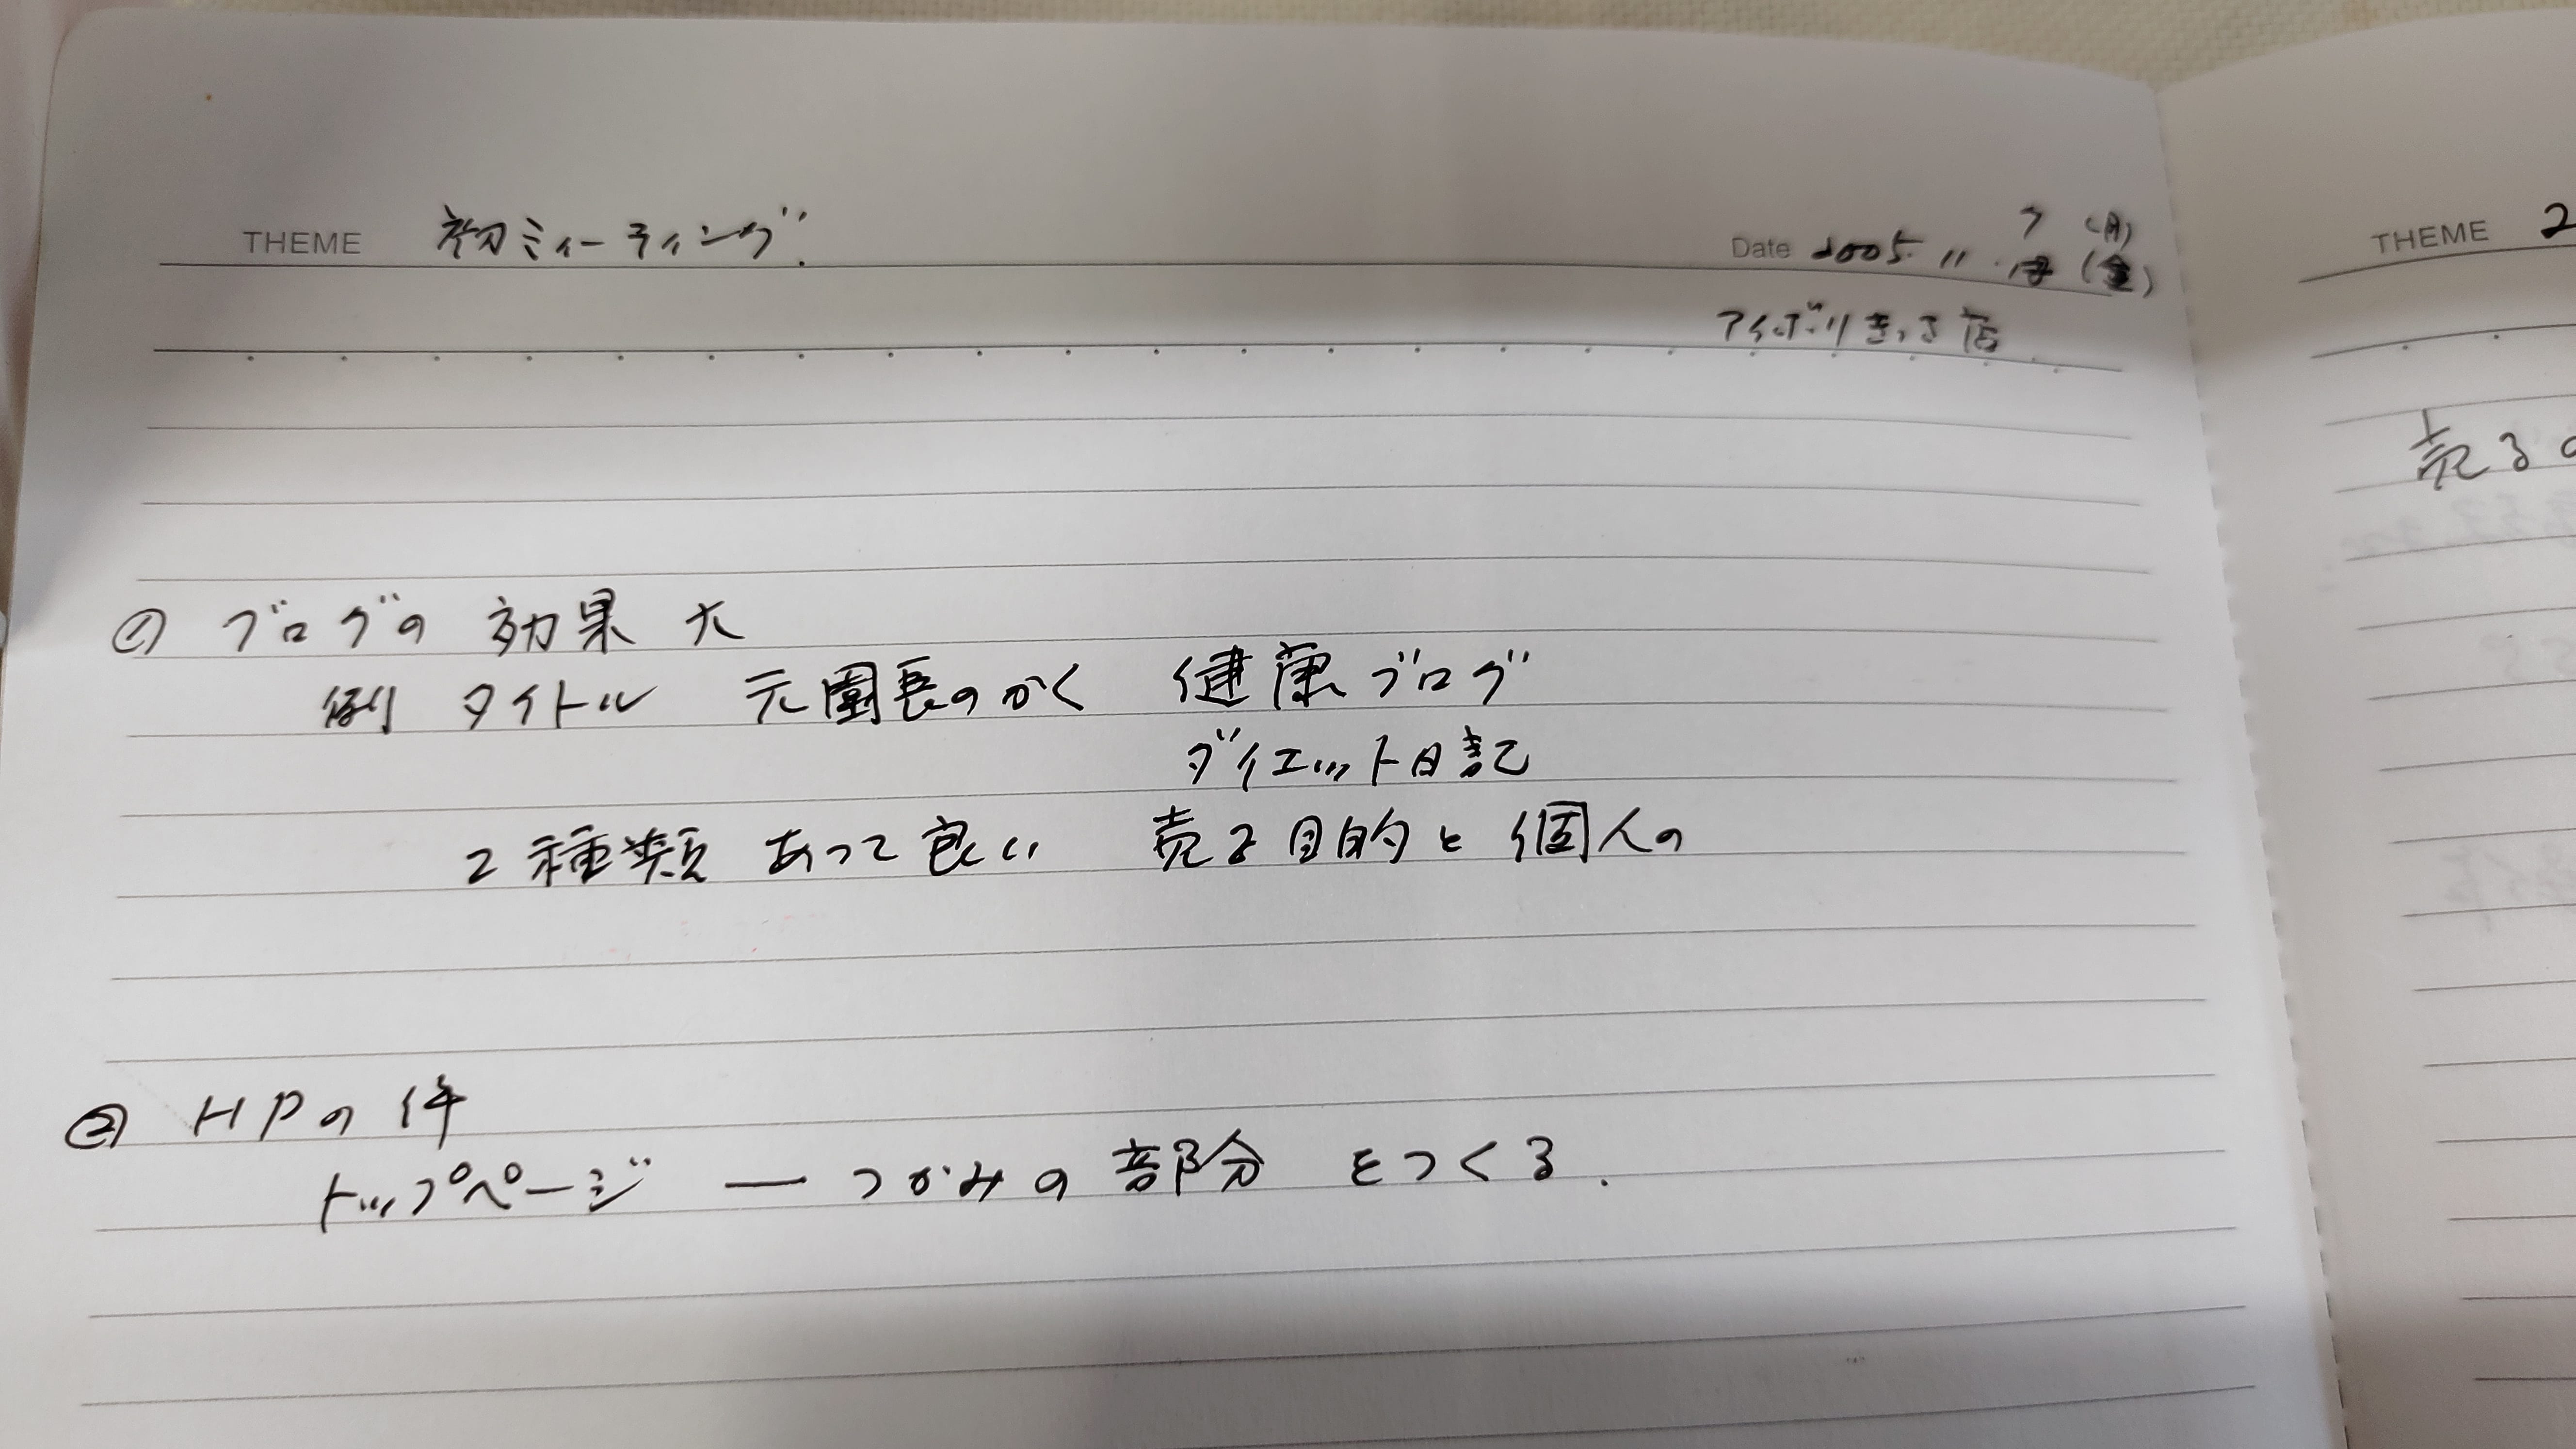 THEME 初ミーティング.
Date 2005. 11. 7 (月)
店
① ブログの 効果 大
例 タイトル 元園長のかく 健康ブログ
ダイエット日記
2種類 あって良い 売る目的と個人の
② HPの件
トップページ ― つかみの部分 をつくる.
THEME 2
売る